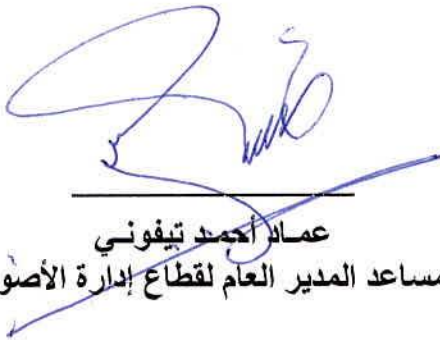 عماد أحمد تيفوني
مساعد المدير العام لقطاع إدارة الأصو